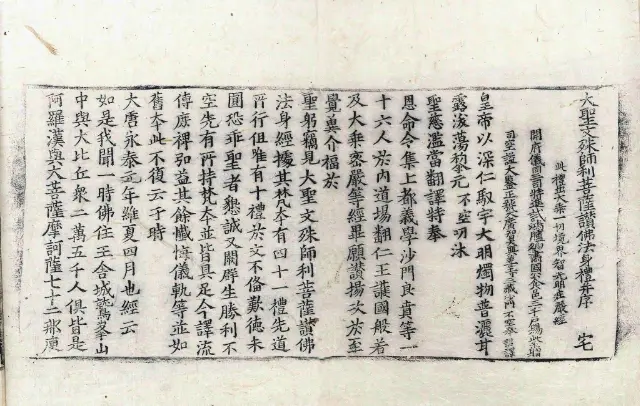 大聖文殊師利菩薩讚佛法身禮并序　宅
此禮出大乘一切境界智光明莊嚴經
開府儀同三司特進試鴻臚卿肅國公食邑三千戶賜紫贈
司空謚大鑒正號大廣智大興善寺三藏沙門不空奉　詔譯
皇帝以深仁馭宇大明燭物普灑甘
露滌蕩黎元不空叨沐
聖慈濫當翻譯特奉
恩命令集上都義學沙門良賁等一
十六人於內道場翻仁王護國般若
及大乘密嚴等經畢願讚揚次於至
覺冀介福於
聖躬竊見大聖文殊師利菩薩讚佛
法身經據其梵本有四十一禮先道
所行但唯有十禮於文不備歎德未
圓恐乖聖者懇誠又闕群生勝利不
空先有所持梵本並皆具足今譯流
傳庶裨弘益其餘懺悔儀軌等並如
舊本此不復云于時
大唐永泰元年維夏四月也經云
如是我聞一時佛住王舍城鷲峯山
中與大比丘眾二萬五千人俱皆是
阿羅漢與大菩薩摩訶薩七十二那庾